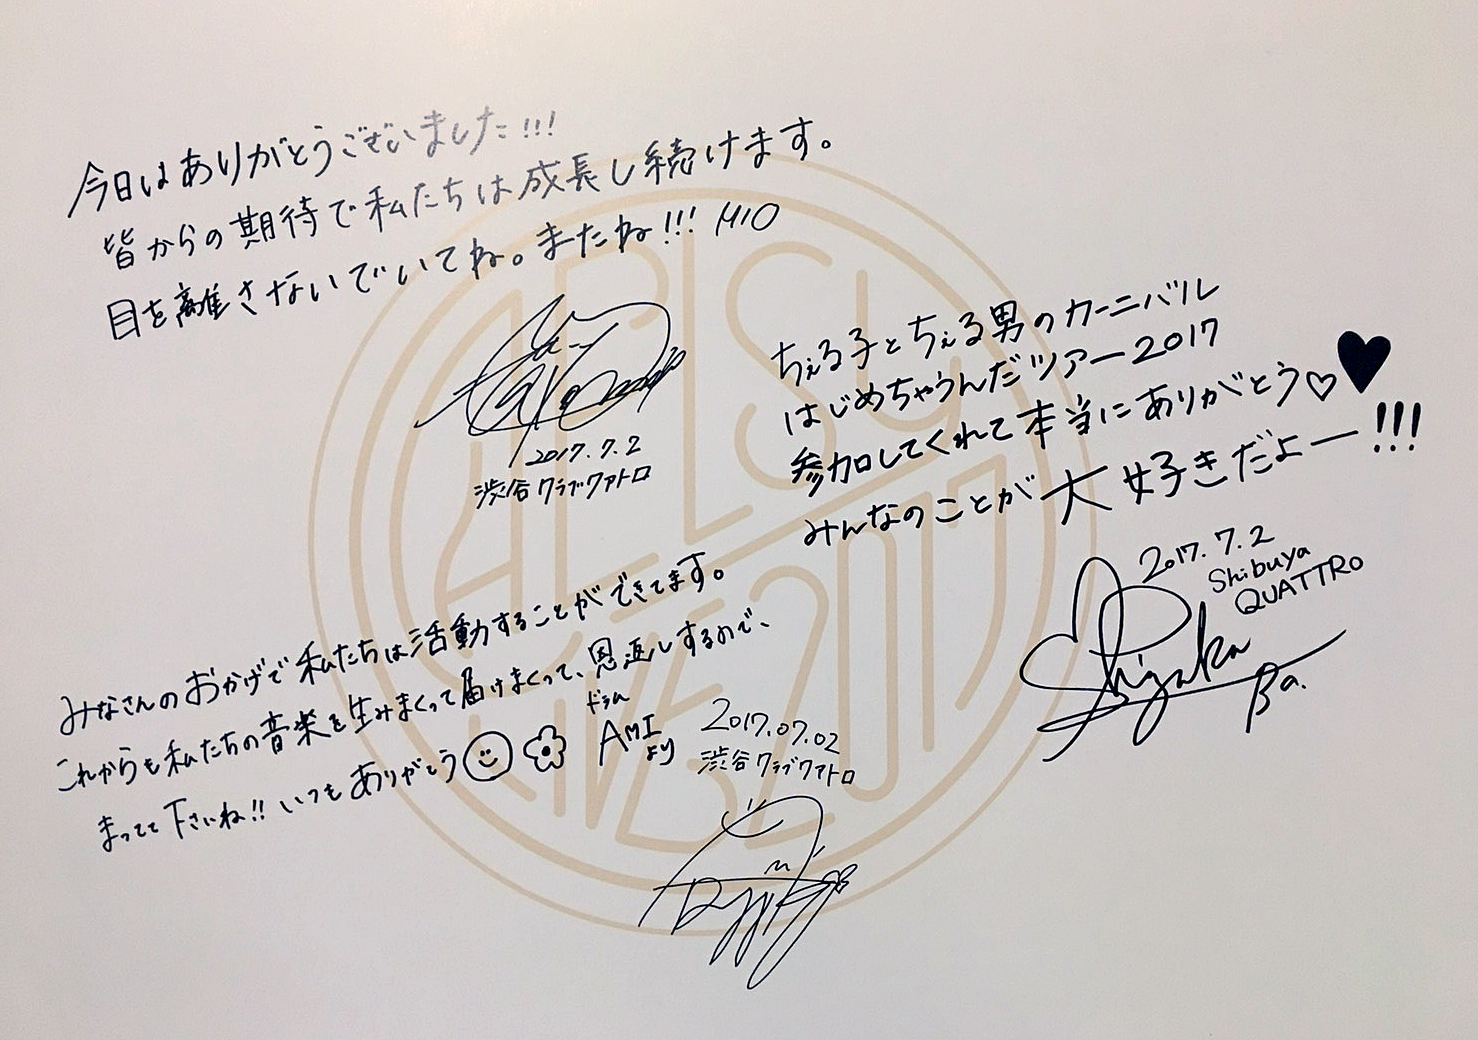 今日はありがとうございました!!!
皆からの期待で私たちは成長し続けます。
目を離さないでいてね。またね!!! MIO
2017.7.2
渋谷クラブクアトロ
ちぇる子とちぇる男のカーニバル
はじめちゃうんだツアー2017
参加してくれて本当にありがとう♡♥
みんなのことが大好きだよー!!!
2017.7.2
Shibuya
QUATTRO
Shizuka
Ba.
みなさんのおかげで私たちは活動することができてます。
これからも私たちの音楽を生みまくって届けまくって、恩返しするので、
まってて下さいね!! いつもありがとう
ドラム
AMI
より
2017.07.02
渋谷クラブクアトロ
LIVE 2017